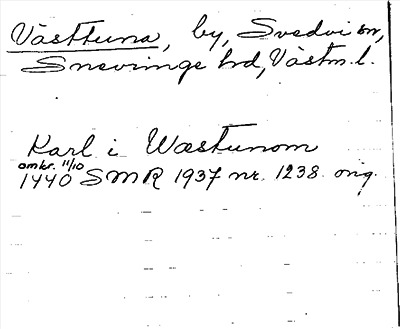 Västtuna, by, Svedvi sn,
Snevringe hd, Västm. l.
Karl i Wæstunom
omkr. 11/10
1440 SMR 1937 nr. 1238 orig.